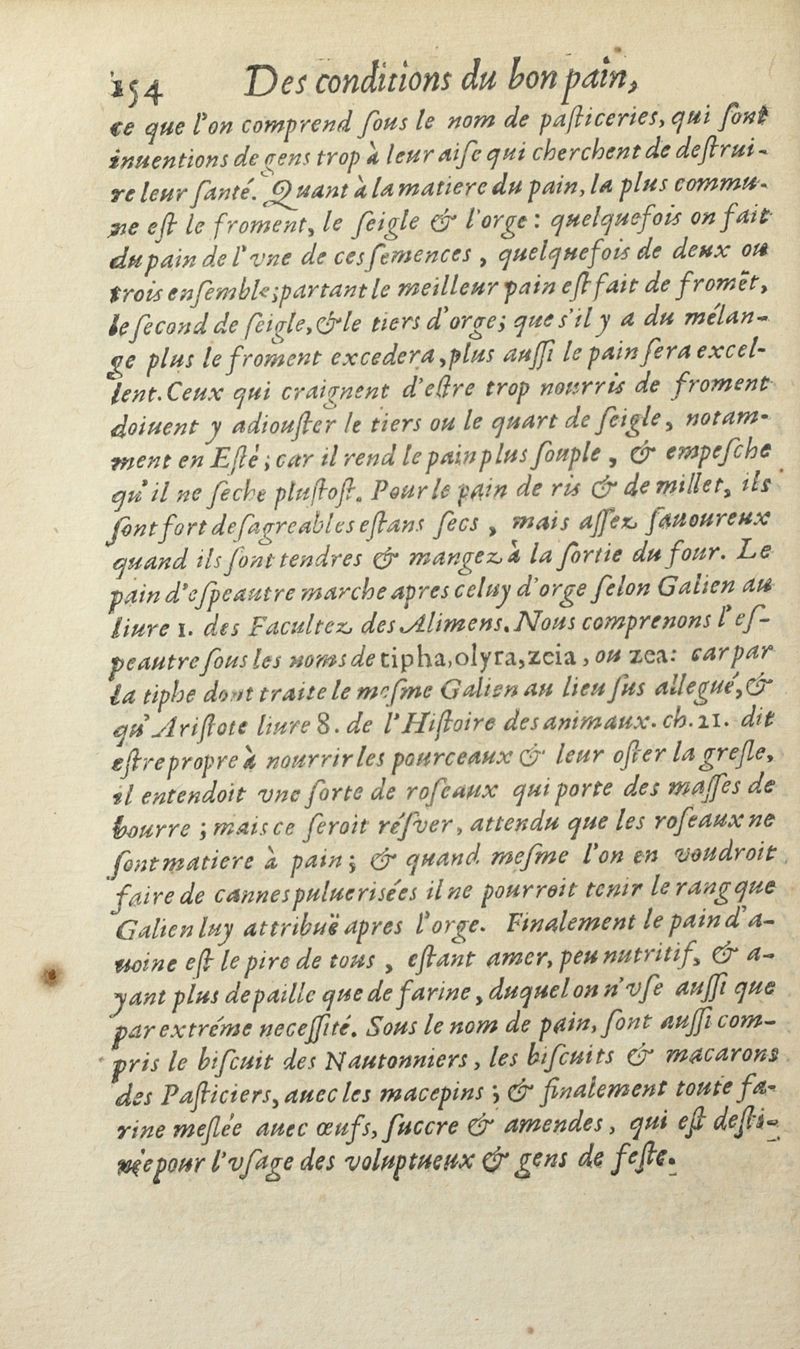 154 Des conditions du bon pain,
ce que l'on comprend ſous le nom de paſticeries, qui ſont
inuentions de gens trop à leur aiſe qui cherchent de deſtrui-
re leur ſanté. Quant à la matiere du pain, la plus commu-
ne eſt le froment, le ſeigle & l'orge : quelquefois on fait
du pain de l'vne de ces ſemences , quelquefois de deux ou
trois enſemble ; partant le meilleur pain eſt fait de fromẽt,
le ſecond de ſeigle, & le tiers d'orge ; que s'il y a du mélan-
ge plus le froment excedera , plus auſſi le pain ſera excel-
lent. Ceux qui craignent d'eſtre trop nourris de froment
doiuent y adiouſter le tiers ou le quart de ſeigle , notam-
ment en Eſté ; car il rend le pain plus ſouple , & empeſche
qu'il ne ſeche pluſtoſt. Pour le pain de ris & de millet, ils
ſont fort deſagreables eſtans ſecs , mais aſſez ſauoureux
quand ils ſont tendres & mangez à la ſortie du four. Le
pain d'eſpeautre marche apres celuy d'orge ſelon Galien au
liure 1. des Facultez des Alimens. Nous comprenons l'eſ-
peautre ſous les noms de tipha, olyra, zeia , ou zea: car par
la tiphe dont traite le meſme Galien au lieu ſus allegué, &
qu'Ariſtote liure 8. de l'Hiſtoire des animaux. ch. 21. dit
eſtre propre à nourrir les pourceaux & leur oſter la greſle,
il entendoit vne ſorte de roſeaux qui porte des maſſes de
bourre ; mais ce ſeroit réſver, attendu que les roſeaux ne
ſont matiere à pain ; & quand meſme l'on en voudroit
faire de cannes puluerisées il ne pourroit tenir le rang que
Galien luy attribuë apres l'orge. Finalement le pain d'a-
uoine eſt le pire de tous , eſtant amer, peu nutritif, & a-
yant plus de paille que de farine , duquel on n'vſe auſſi que
par extréme neceſſité. Sous le nom de pain, ſont auſſi com-
pris le biſcuit des Nautonniers , les biſcuits & macarons
des Paſticiers, auec les macepins ; & finalement toute fa-
rine meſlée auec œufs, ſuccre & amendes , qui eſt deſti-
née pour l'vſage des voluptueux & gens de feſte.